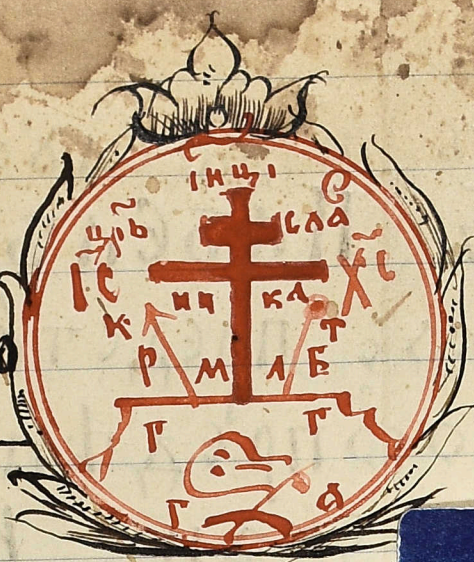 ІНЦІ
ЦР҃Ь СЛА
ІС Х҃С
НИ КА
К Т
Р М Л Б
Г Г
Г А